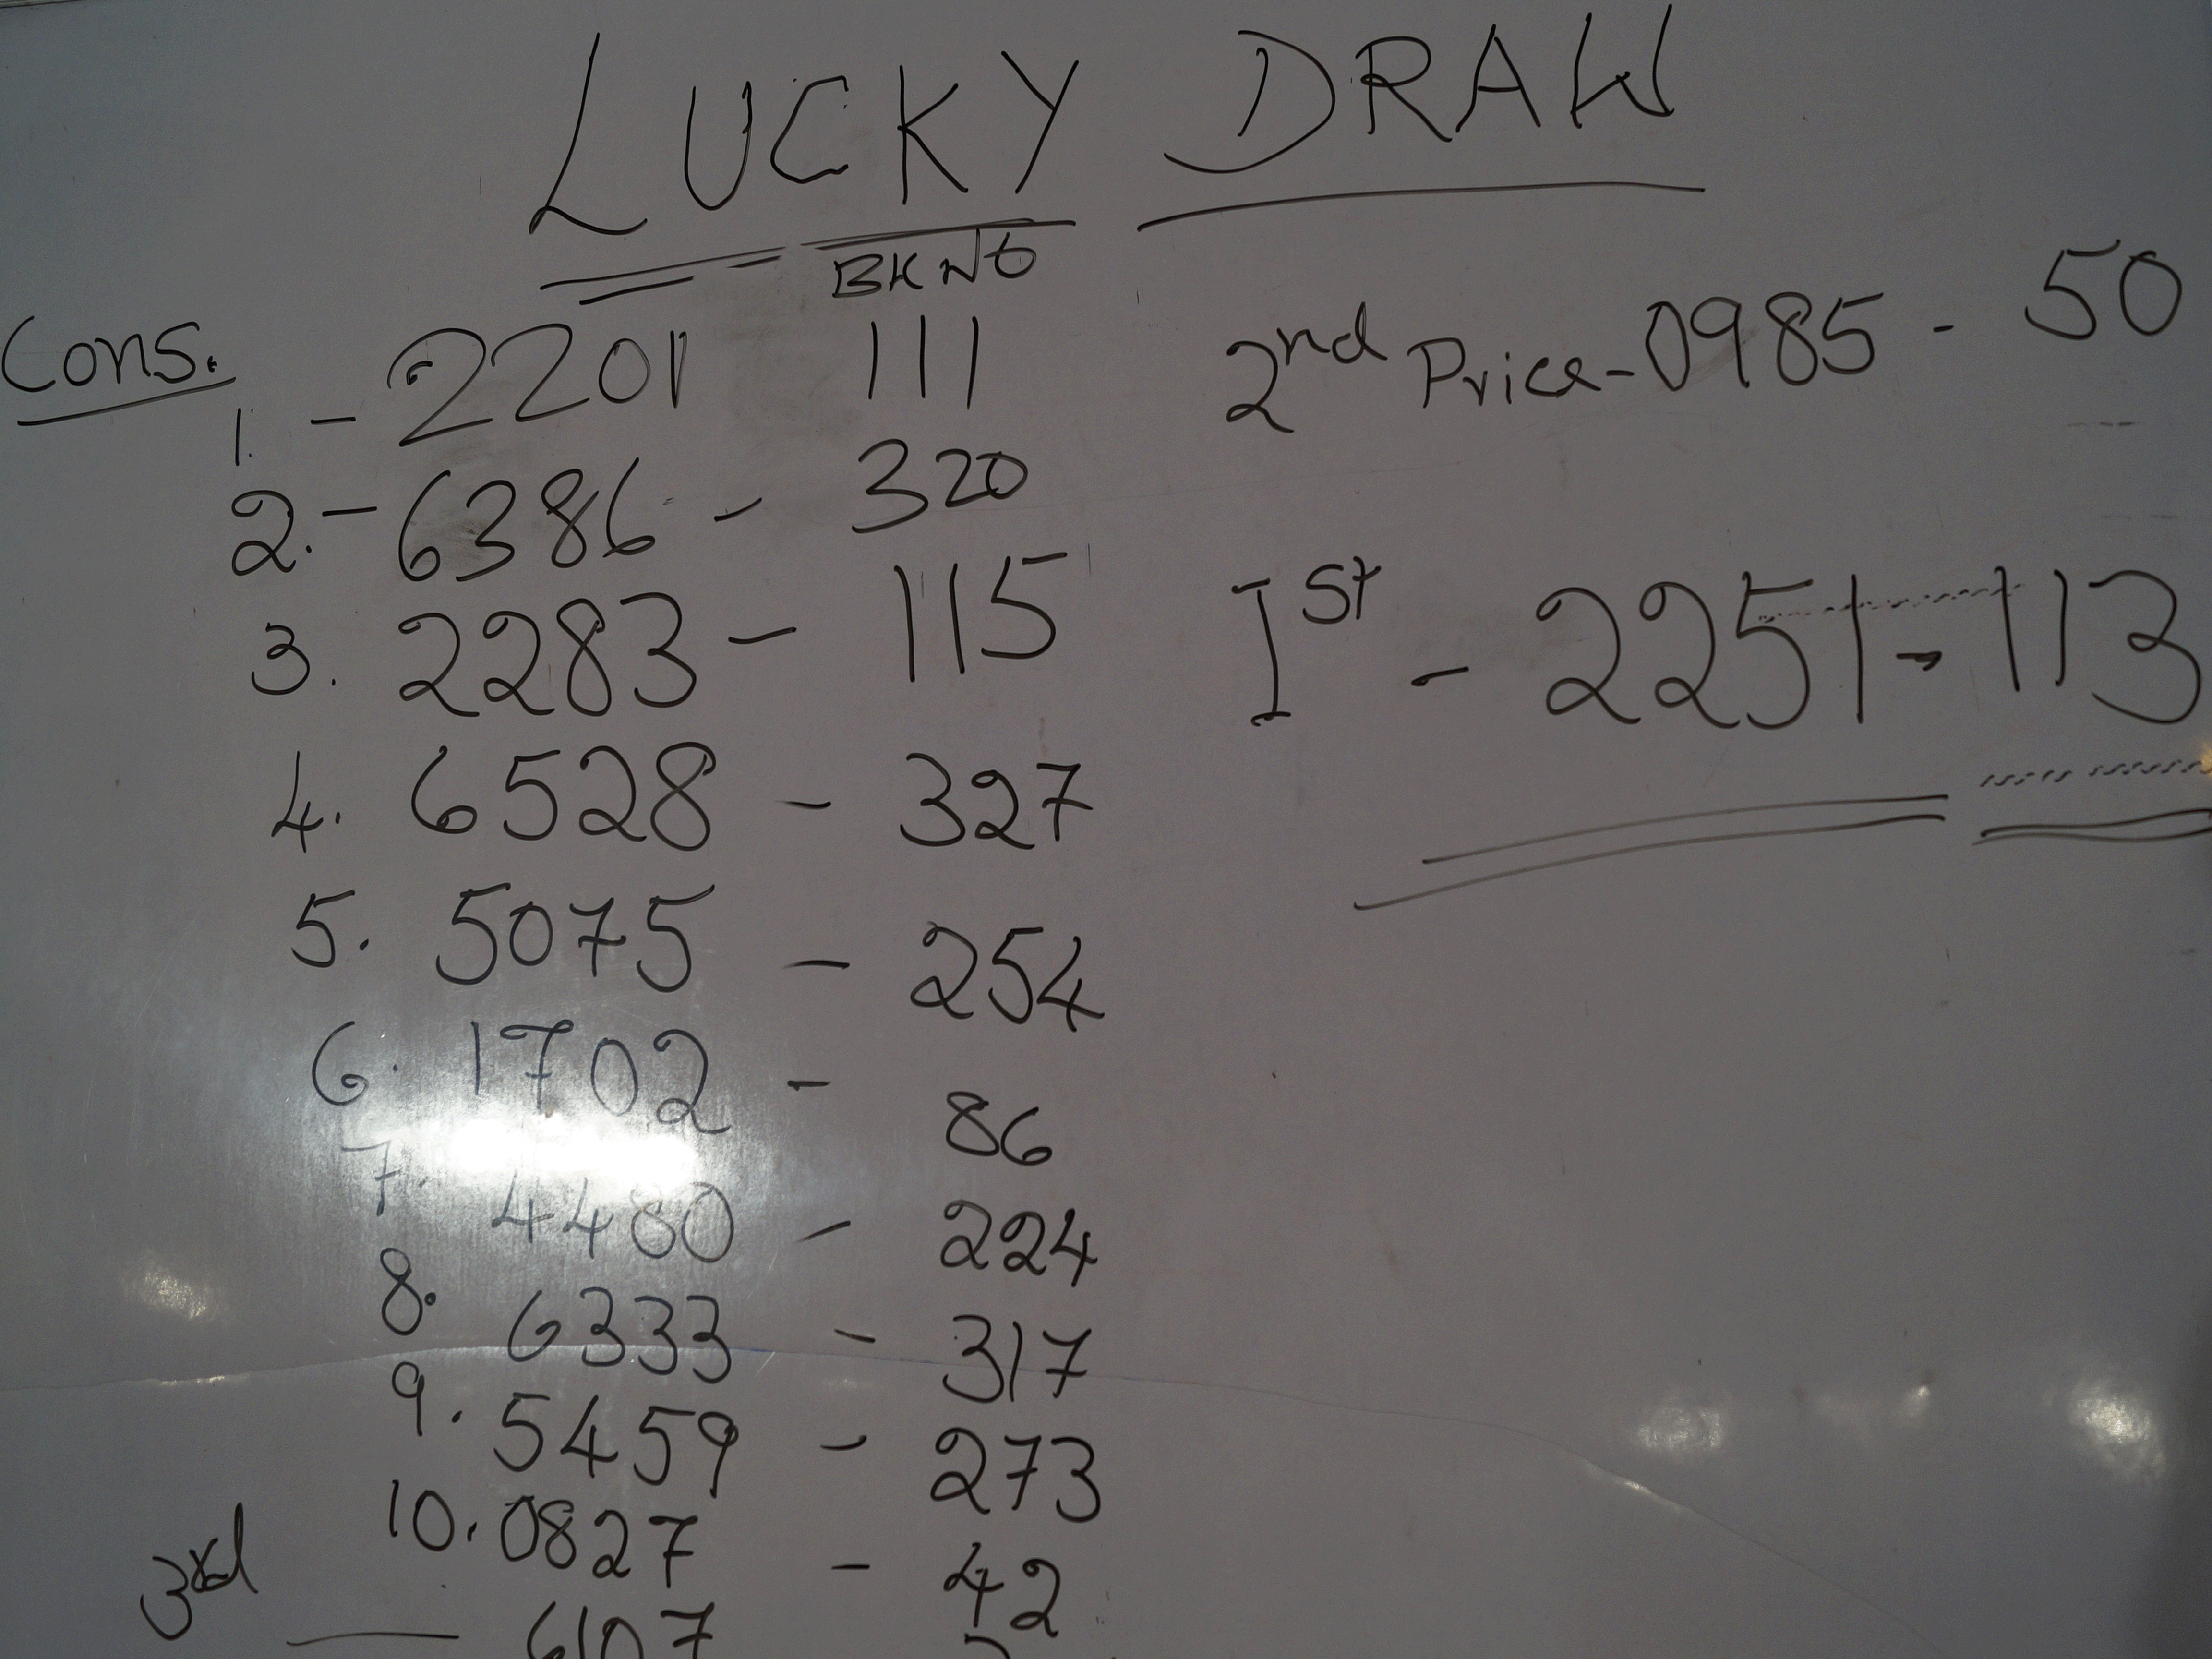 LUCKY DRAW
BKNO
Cons.
1. - 2201 111
2. - 6386 - 320
3. 2283 - 115
4. 6528 - 327
5. 5075 - 254
6. 1702 - 86
7. 4480 - 224
8. 6333 - 317
9. 5459 - 273
10. 0827 - 42
3rd — 6107
2nd Price - 0985 - 50
Ist - 2251 - 113